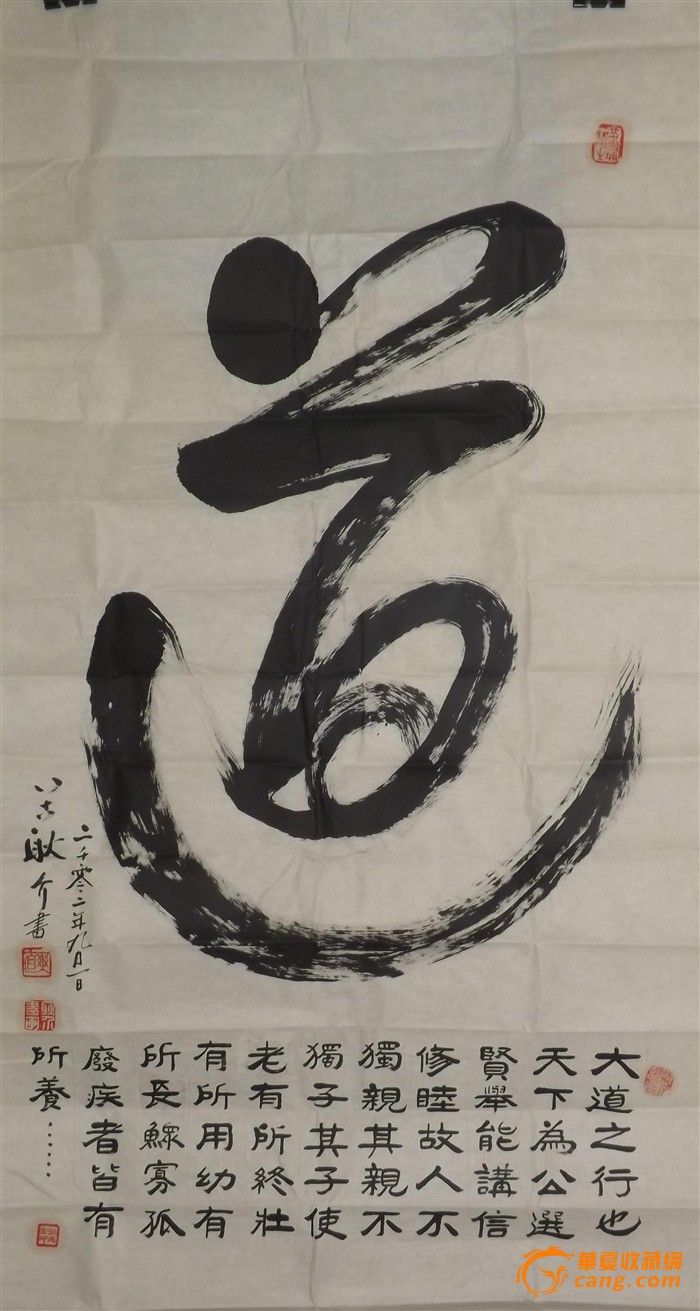 道
二千零二年九月一日
耿介書
大道之行也
天下為公選
賢舉能講信
修睦故人不
獨親其親不
獨子其子使
老有所終壯
有所用幼有
所長鰥寡孤
廢疾者皆有
所養……
華夏收藏網
cang.com